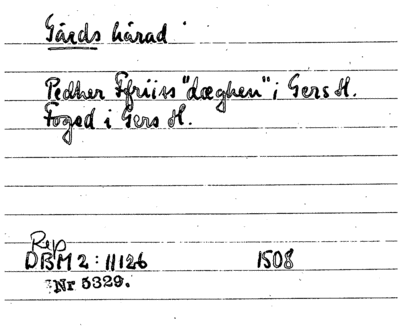 Gärds härad
Pedher Ffriiss "dæghen" i Gers H.
Foged i Gers H.
Rep
DBM 2: 11126 1508
Nr 5329.